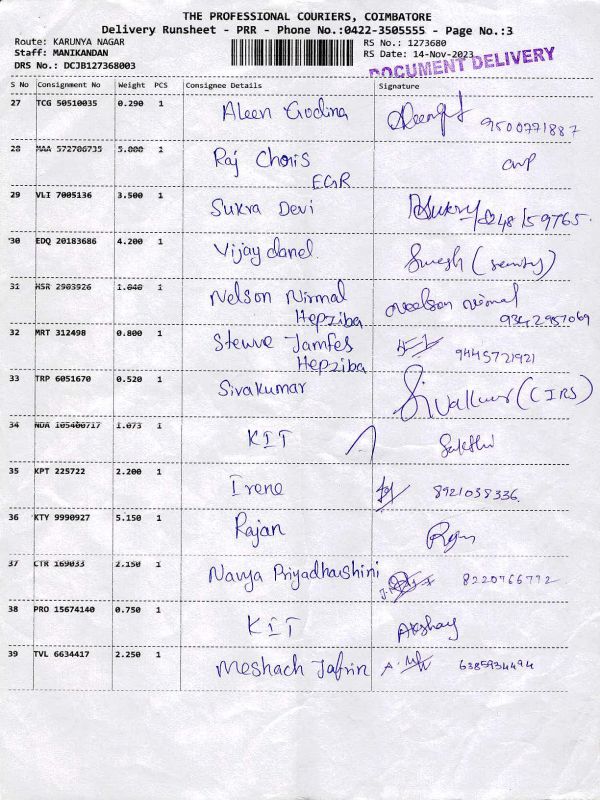 THE PROFESSIONAL COURIERS, COIMBATORE
Delivery Runsheet - PRR - Phone No.:0422-3505555 - Page No.:3
Route: KARUNYA NAGAR RS No.: 1273680
Staff: MANIKANDAN RS Date: 14-Nov-2023
DRS No.: DCJB127368003 DOCUMENT DELIVERY
S No Consignment No Weight PCS Consignee Details Signature
27 TCG 50510035 0.290 1 Aleen Godina 9500771887
28 MAA 572706735 5.000 1 Raj Choris
EGR
29 VLI 7005136 3.500 1 Sukra Devi
30 EDQ 20183686 4.200 1 Vijay danel Suresh (security)
31 HSR 2903926 1.040 1 Nelson Nirmal Neelson Nirmal
Hepziba 9342957069
32 MRT 312498 0.800 1 Stewve Jamfes 9445721921
Hepziba
33 TRP 6051670 0.520 1 Sivakumar (CIRS)
34 NDA 105400717 1.073 1 KIT Sakthi
35 KPT 225722 2.200 1 Irene 8921038336
36 KTY 9990927 5.150 1 Rajan
37 CTR 169033 2.150 1 Navya Priyadharshini 8220766772
38 PRO 15674140 0.750 1 KIT Akshay
39 TVL 6634417 2.250 1 Meshach Jafrin 6385934494